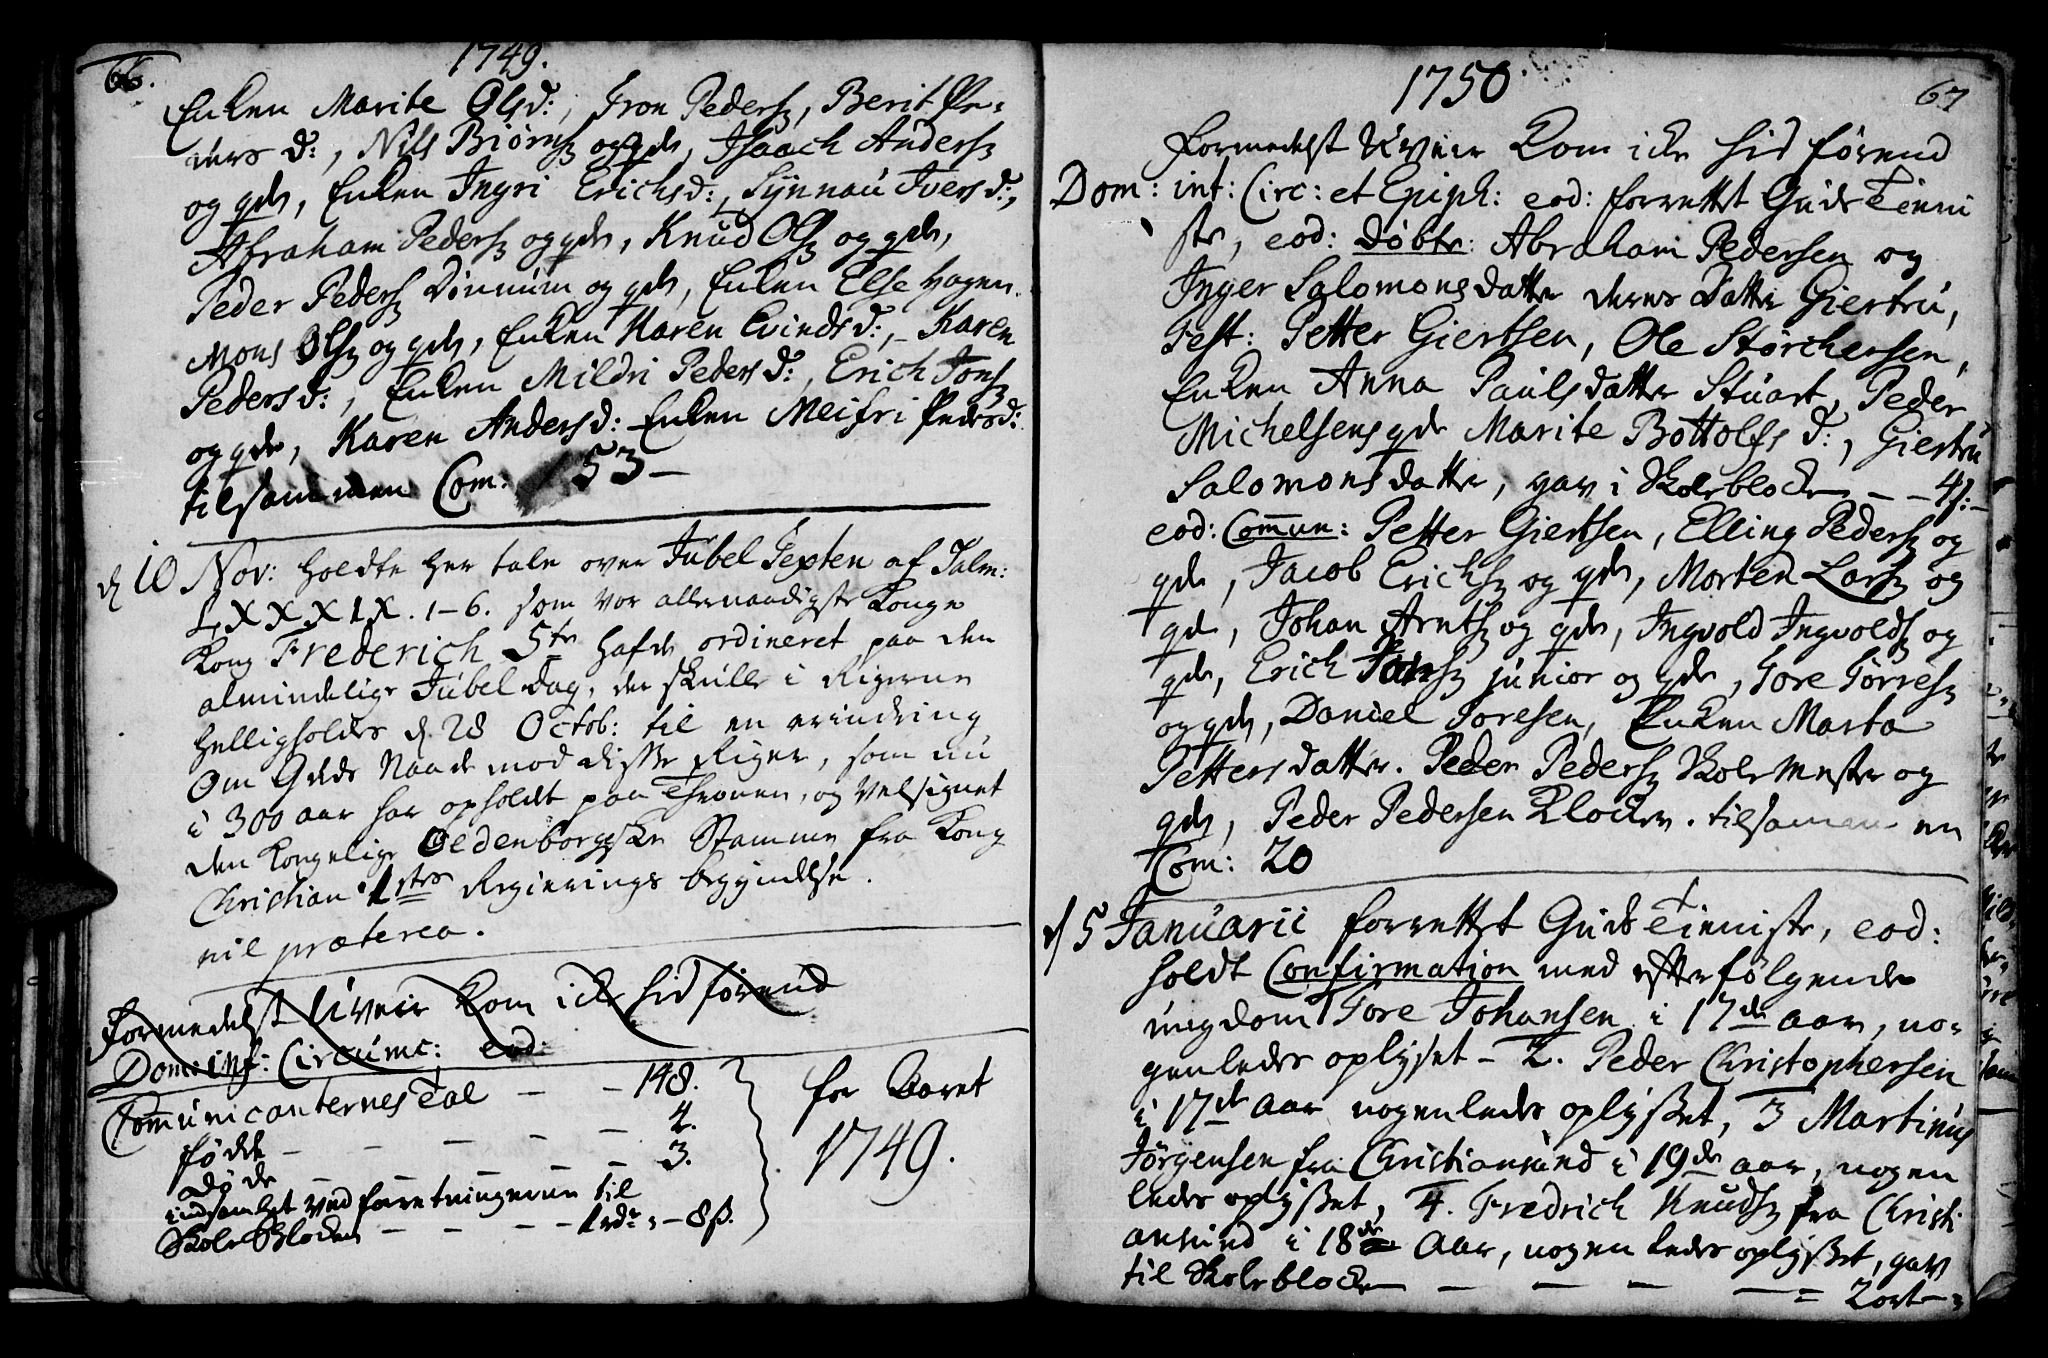 66.
1749.
Enken Marite Olsd:, Iron Peders, Berit Pe=
ders d:, Nils Biørns og qde, Isaach Anders
og qde, Enken Ingri Erichsd:, Synnau Ivers d:,
Abraham Peders og qde, Knud Ols og qde,
Peder Peders Dinnum og qde, Enken Else Hagen
Mons Ols og qde, Enken Karen Evindsd:, Karen
Peders d:, Enken Mildri Peders d:, Erich Jons
og qde, Karen Anders d: Enken Meifri Pedersd:
tilsammen Com: 53 –
d 10 Nov: holdte her tale over Jubel Texten af Psalm:
LXXXIX. 1–6. som vor allernaadigste Konge
Kong Frederich 5te hafde ordineret paa den
almindelige Jubel dag, der skulle i Rigerne
helligholdes d. 28 Octob: til en erindring
Om Guds Naade mod disse Riger, som nu
i 300 aar har opholdt paa Thronen, og velsignet
den kongelige Oldenborgske Stamme fra Kong
Christian 1stes Regierings begyndelse.
nil præterea.
Formedelst Uveir kom icke hid førend
Dom: inf: Circumc: eod:
Communicanternes Tal – – 148.
fødte – – – – – 4.
døde – – – – 3.
indsamlet ved forretningerne til
Skole Blocken – – – – 1 rdr: – 8ß.
for Aaret
1749.
1750
67
Formedelst Uveir kom icke hid førend
Dom: int: Circ: et Epiph: eod: forrettet Guds Tieni
ste, eod: døbte: Abraham Pedersen og
Inger Salomonsdatter deres Datter Giertru,
Test: Petter Giertsen, Ole Størchersen,
Enken Anna Paulsdatter Stuart, Peder
Michelsens qde Marite Bottolfs d:, Giertru
Salomonsdatter, gav i Skoleblocken – – 4ß: –
eod: Commun: Petter Giertsen, Elling Peders og
qde, Jacob Erichs og qde, Morten Lars og
qde, Johan Arnts og qde, Ingvold Ingvolds og
qde, Erich Jons junior og qde, Tore Tørres
og qde, Daniel Toresen, Enken Marta
Pettersdatter. Peder Peders Skole Mester og
qde, Peder Pedersen Klocker. tilsammen
Com: 20
d 5 Januarii forrettet Guds Tieniste, eod:
holdt Confirmation med efterfølgende
ungdom 1 Tore Johansen i 17de aar, no=
genledes oplyset – 2. Peder Christophersen
i 17de aar nogenledes oplyset, 3 Martinus
Jørgensen fra Christiansund i 19de aar, nogen
ledes oplyset, 4. Fredrich Knuds fra Christi
ansund i 18de Aar, nogenledes oplyset, gav
til Skoleblocken – – – – = 2 ort –